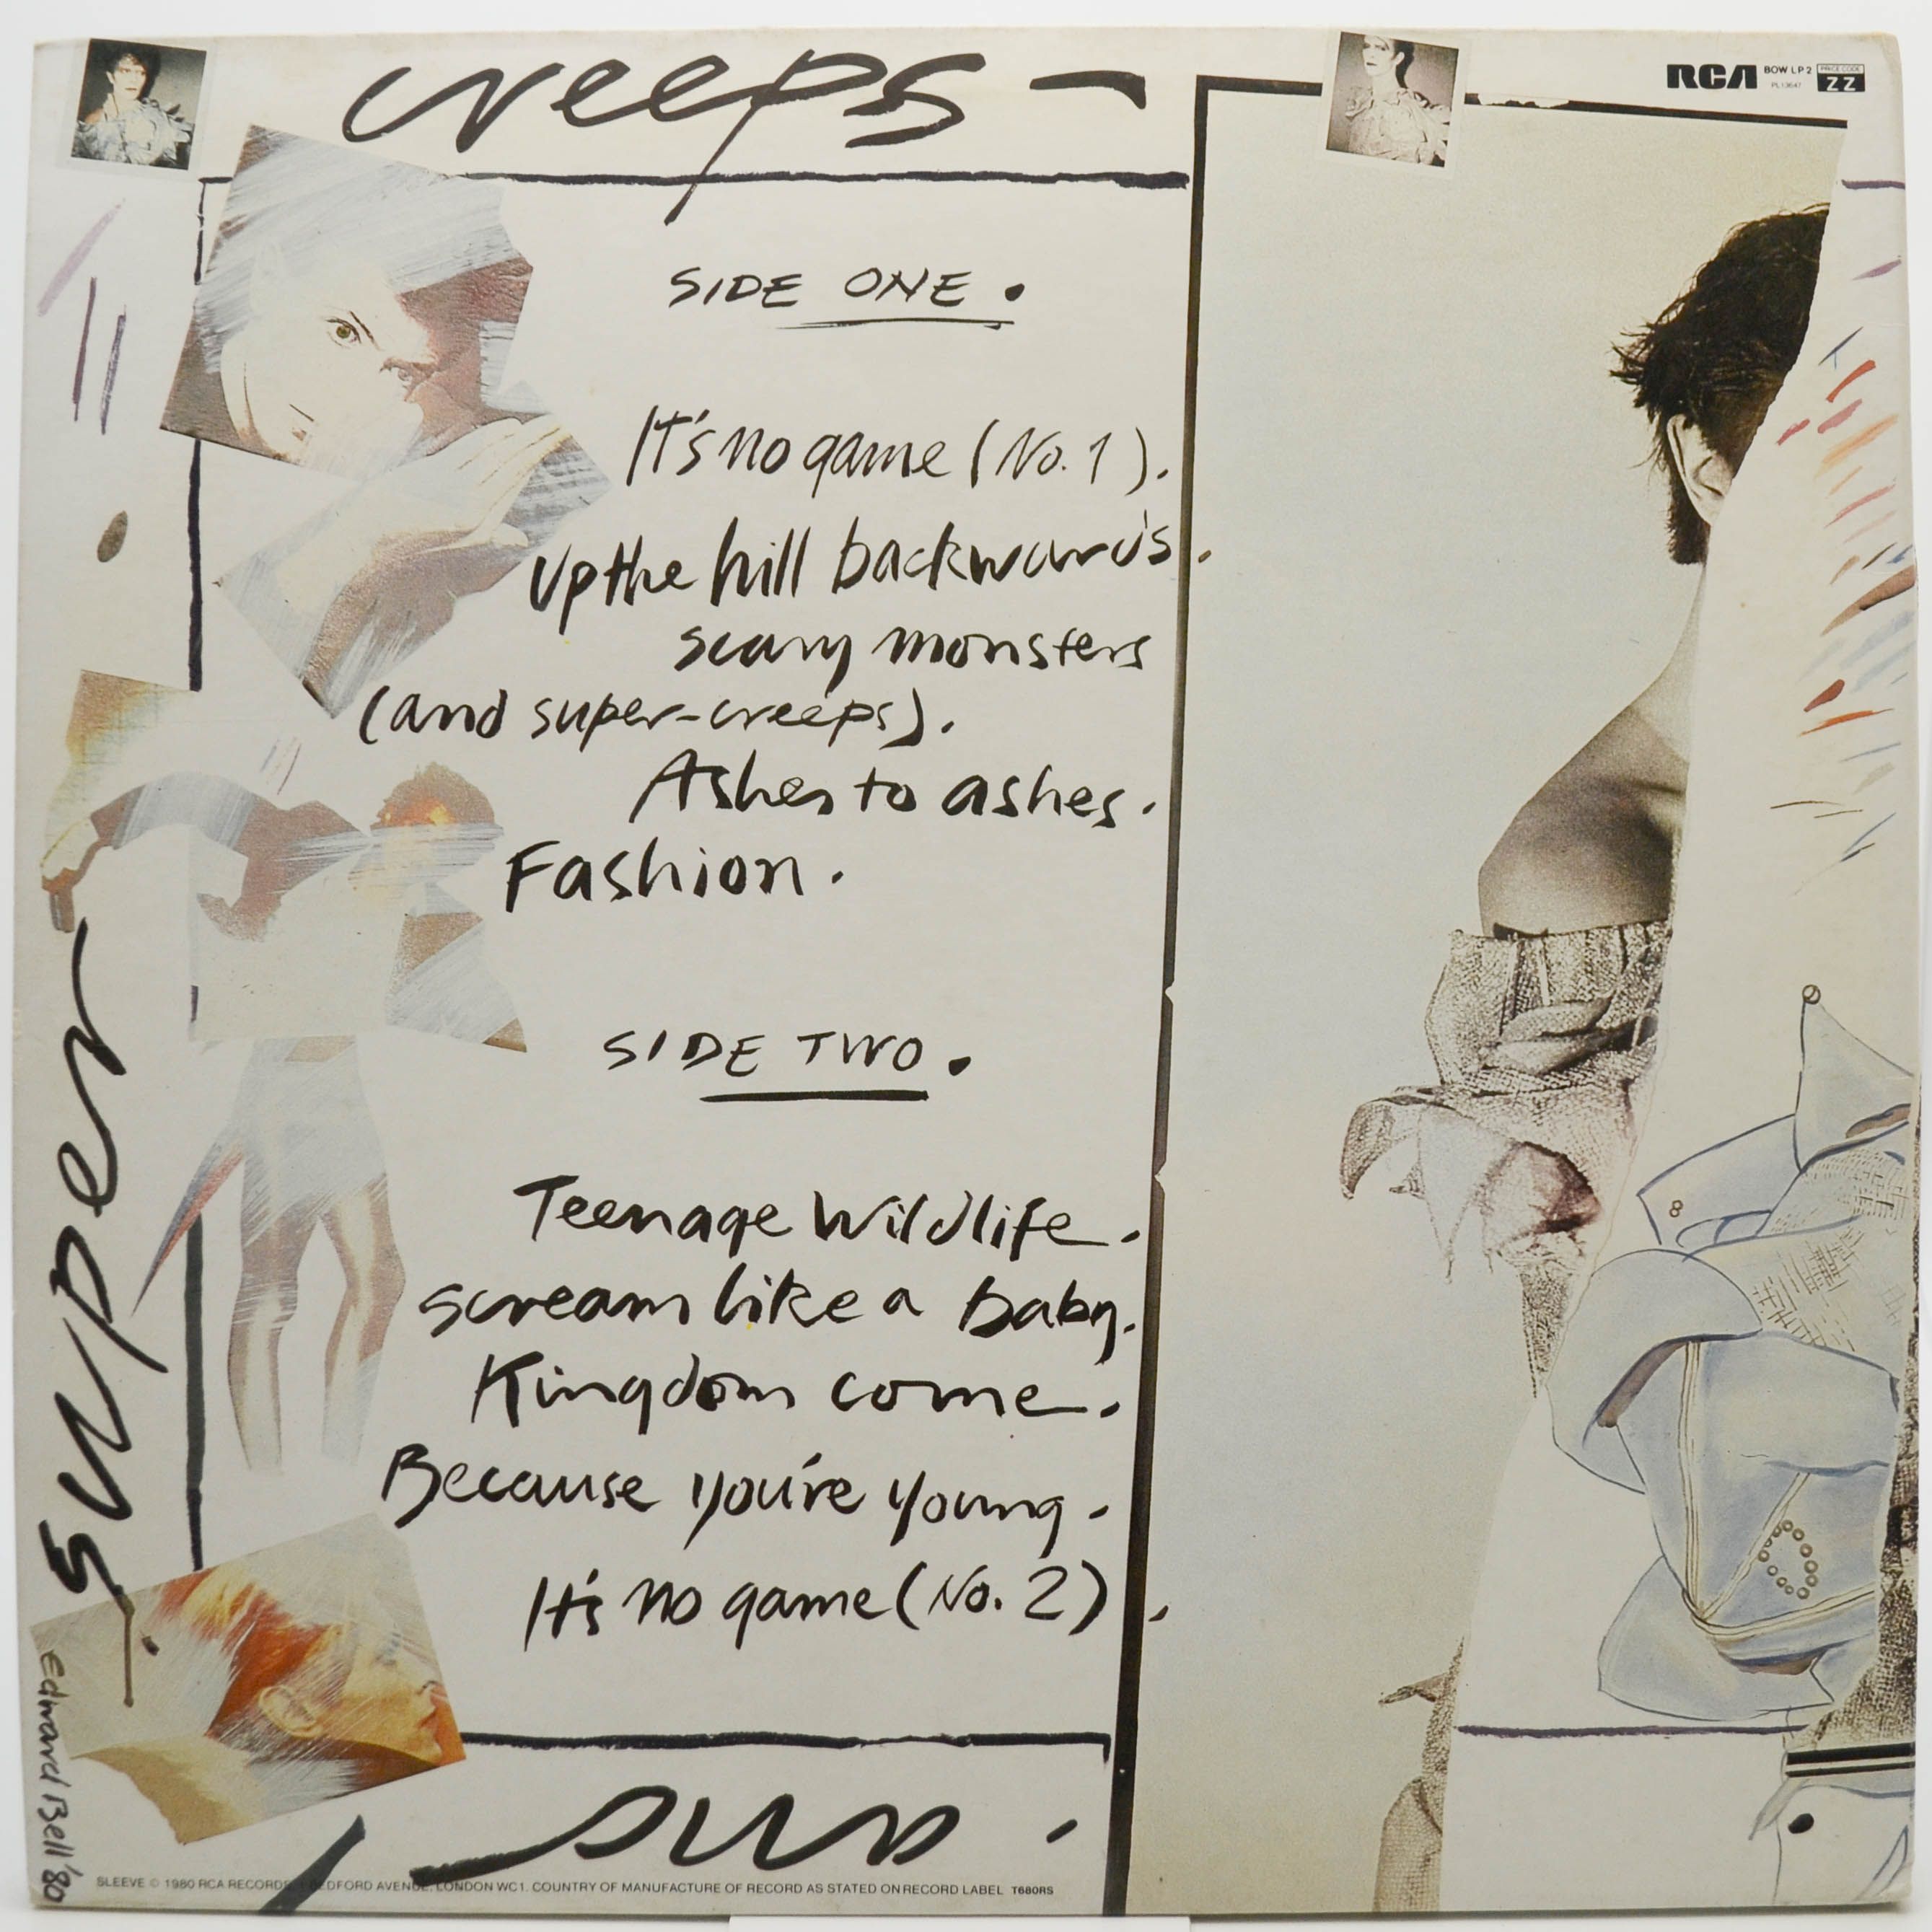 creeps -
RCA BOW LP 2 PRICE CODE
PL13647 ZZ
SIDE ONE.
It's no game (No. 1).
Up the hill backwards.
scary monsters
(and super-creeps).
Ashes to ashes.
Fashion.
SIDE TWO.
Teenage Wildlife.
scream like a baby.
Kingdom come.
Because you're young.
It's no game (No. 2).
super
and
Edward Bell '80
SLEEVE © 1980 RCA RECORDS, BEDFORD AVENUE, LONDON WC1. COUNTRY OF MANUFACTURE OF RECORD AS STATED ON RECORD LABEL T680RS